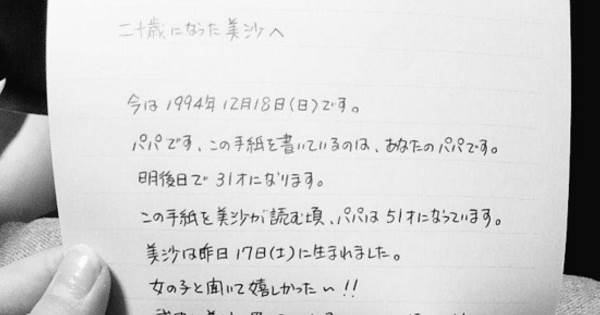 二十歳になった美沙へ
今は1994年12月18日(日)です。
パパです、この手紙を書いているのは、あなたのパパです。
明後日で31才になります。
この手紙を美沙が読む頃、パパは51才になっています。
美沙は昨日17日(土)に生まれました。
女の子と聞いて嬉しかったヽ!!